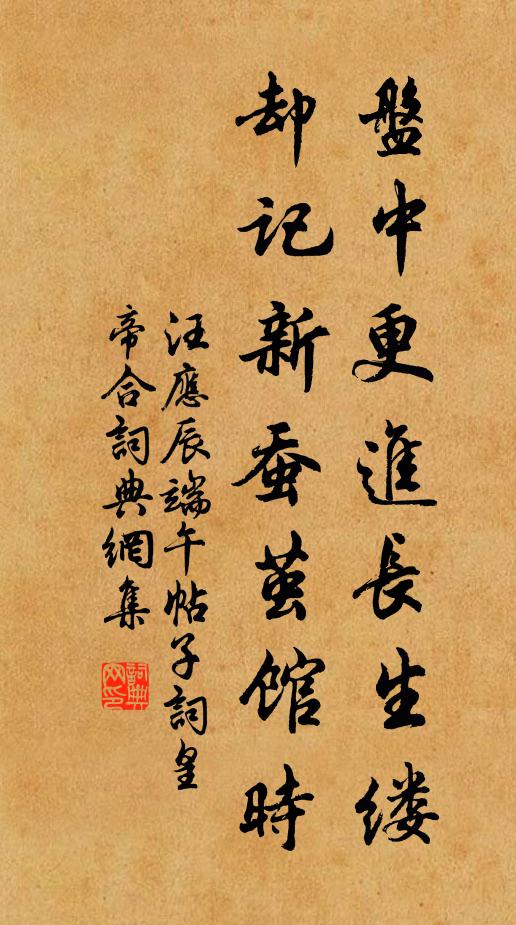 盤中更進長生缕
却记新蚕茧馆時
汪應辰端午帖子詞皇
帝合詞典網集
詞典网印